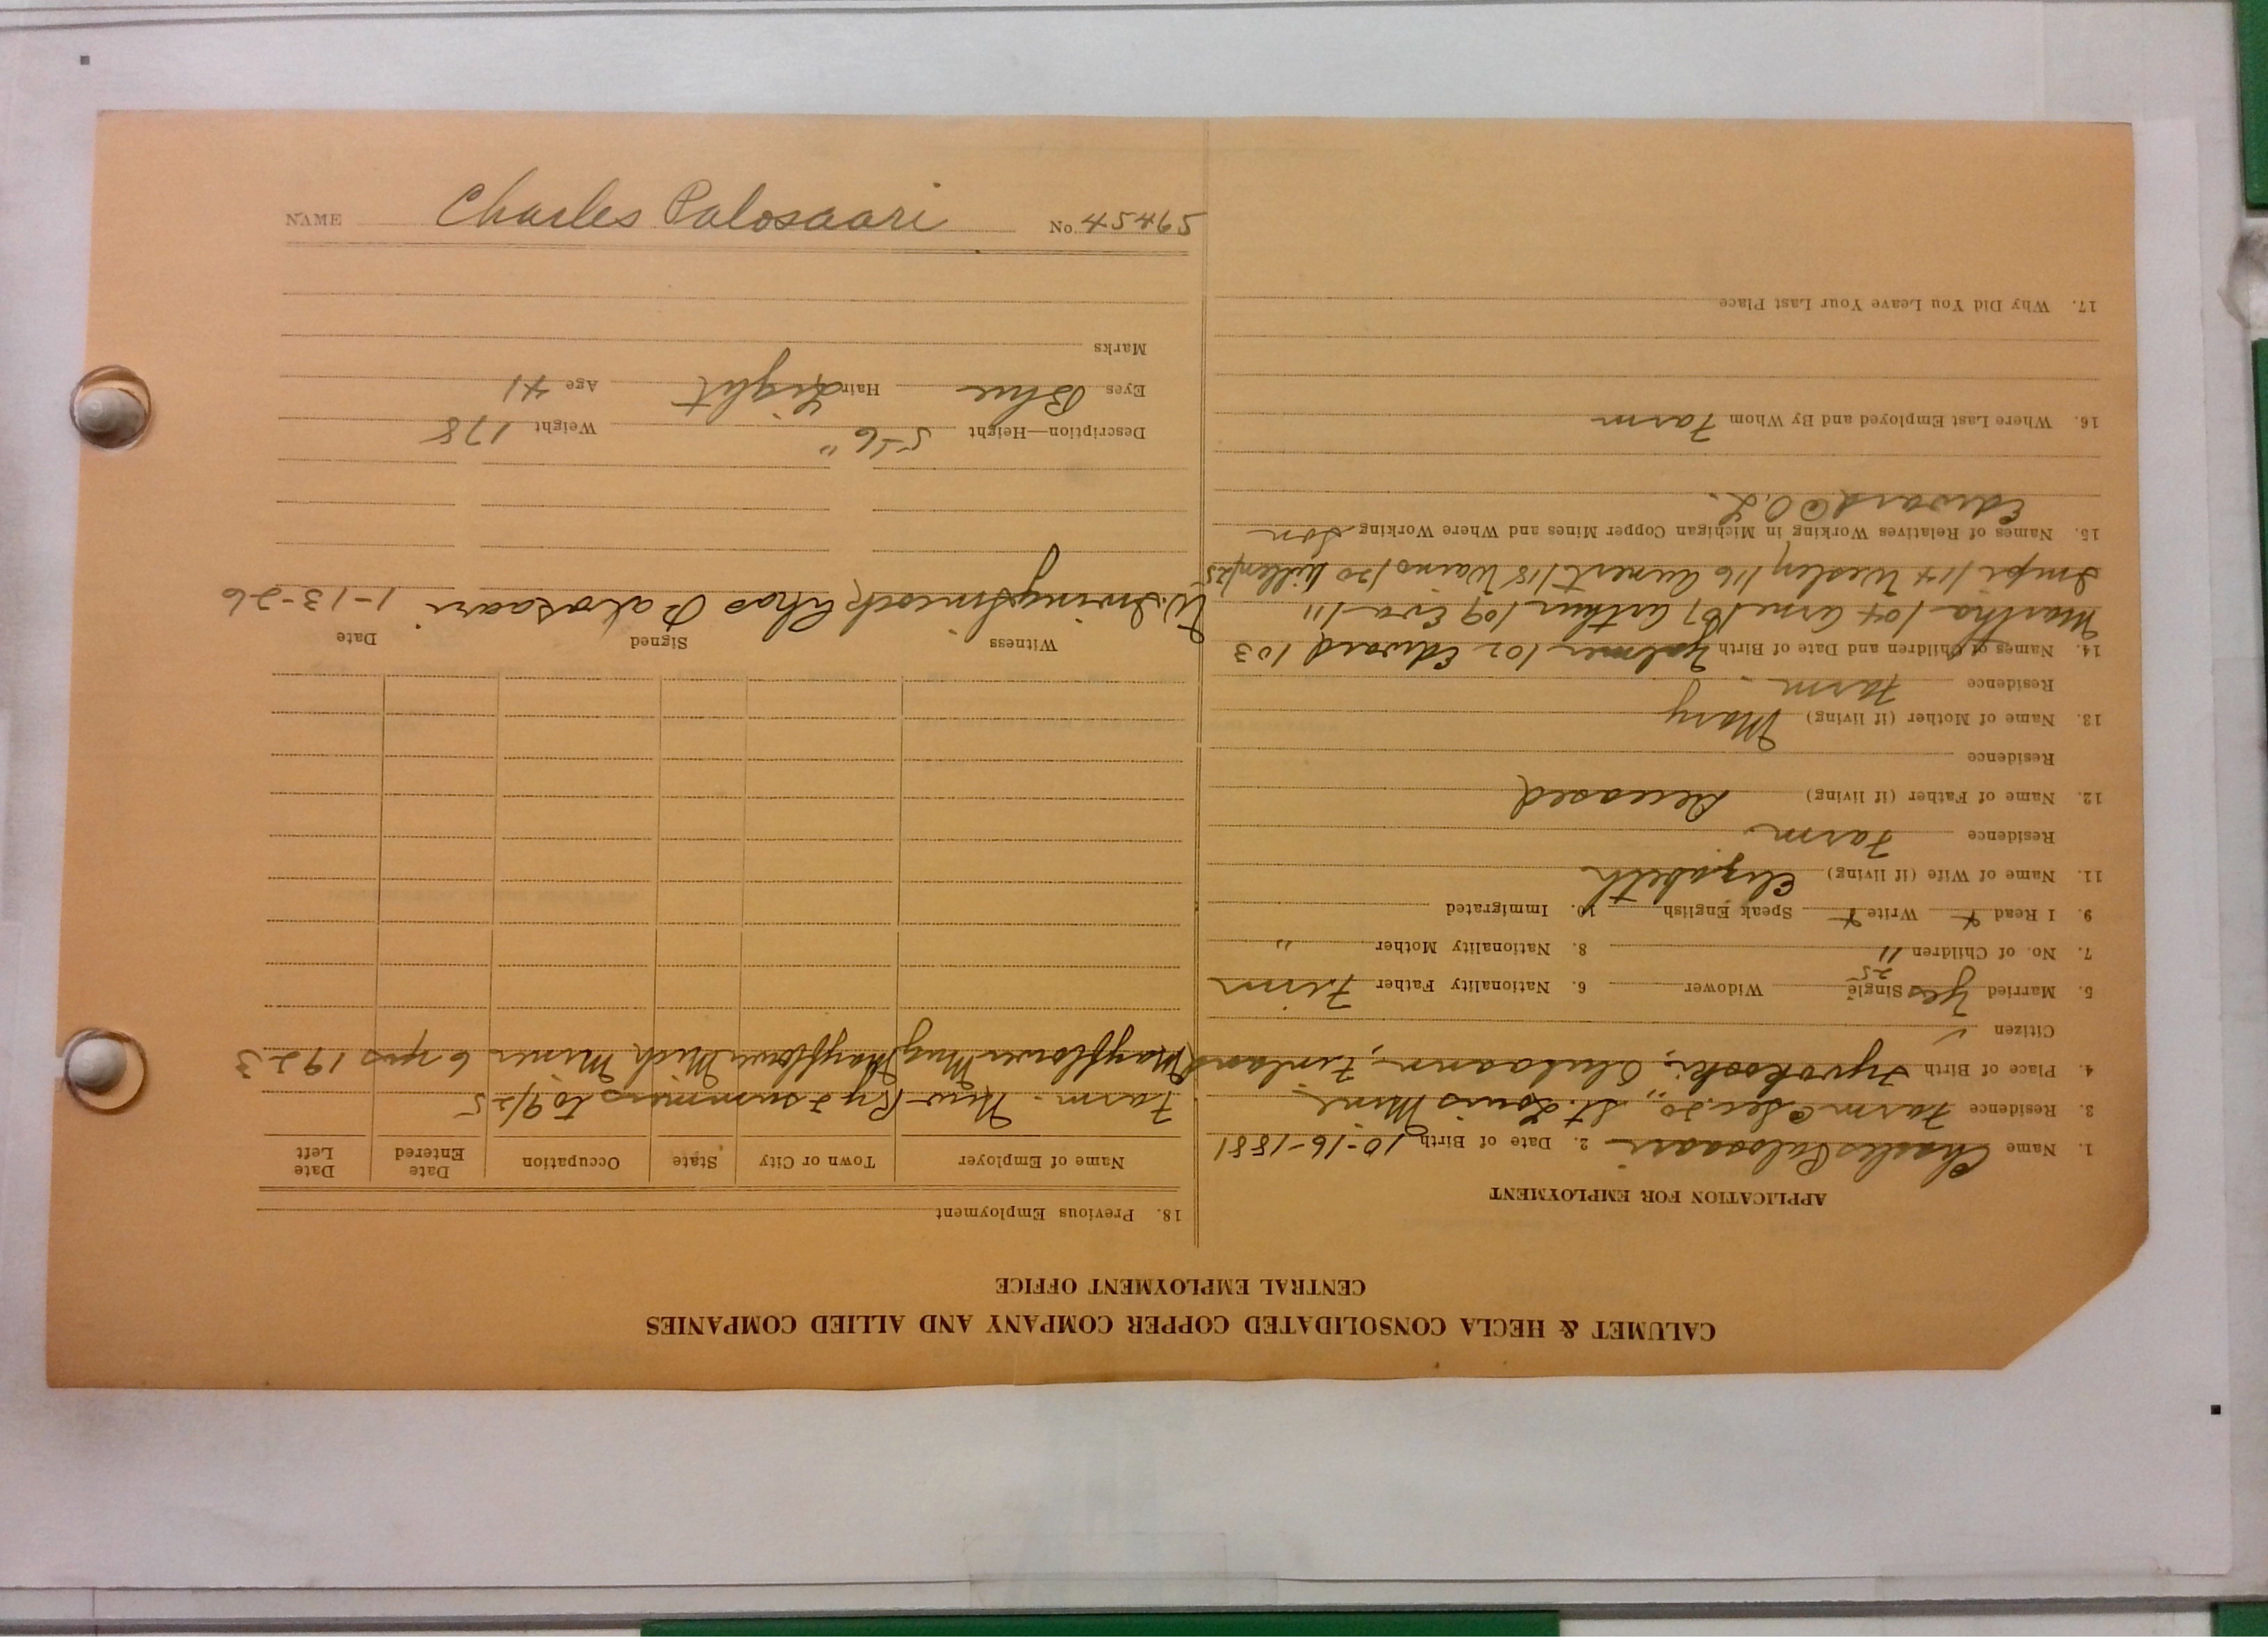 CALUMET & HECLA CONSOLIDATED COPPER COMPANY AND ALLIED COMPANIES
CENTRAL EMPLOYMENT OFFICE
APPLICATION FOR EMPLOYMENT
1. Name Charles Palosaari 2. Date of Birth 10-16-1881
3. Residence Farm @ Sec. 20, St. Louis Mine
4. Place of Birth Finland
Citizen ✓
5. Married Yes Single 25 Widower 6. Nationality Father Finn
7. No. of Children 11 8. Nationality Mother "
9. I Read + Write + Speak English 10. Immigrated
11. Name of Wife (if living) Elizabeth
Residence Farm
12. Name of Father (if living) Deceased
Residence
13. Name of Mother (if living) Mary
Residence Farm
14. Names of Children and Date of Birth Hjalmer 102 Edward 103
Martha 104 Arne 107 Arthur 109 Eva 111
Impi 114 Wesley 116 118 Waino 120 125
15. Names of Relatives Working in Michigan Copper Mines and Where Working Son
Edward @ O.L.
16. Where Last Employed and By Whom Farm
17. Why Did You Leave Your Last Place
18. Previous Employment
Name of Employer Town or City State Occupation Date Entered Date Left
Farm - summers to 9/25
Mayflower Mng Mayflower Mich Miner 6 yrs 1923
Witness Signed Date
W. Irving Chas Palosaari 1-13-26
Description—Height 5-6" Weight 178
Eyes Blue Hair Light Age 41
Marks
NAME Charles Palosaari No. 45465